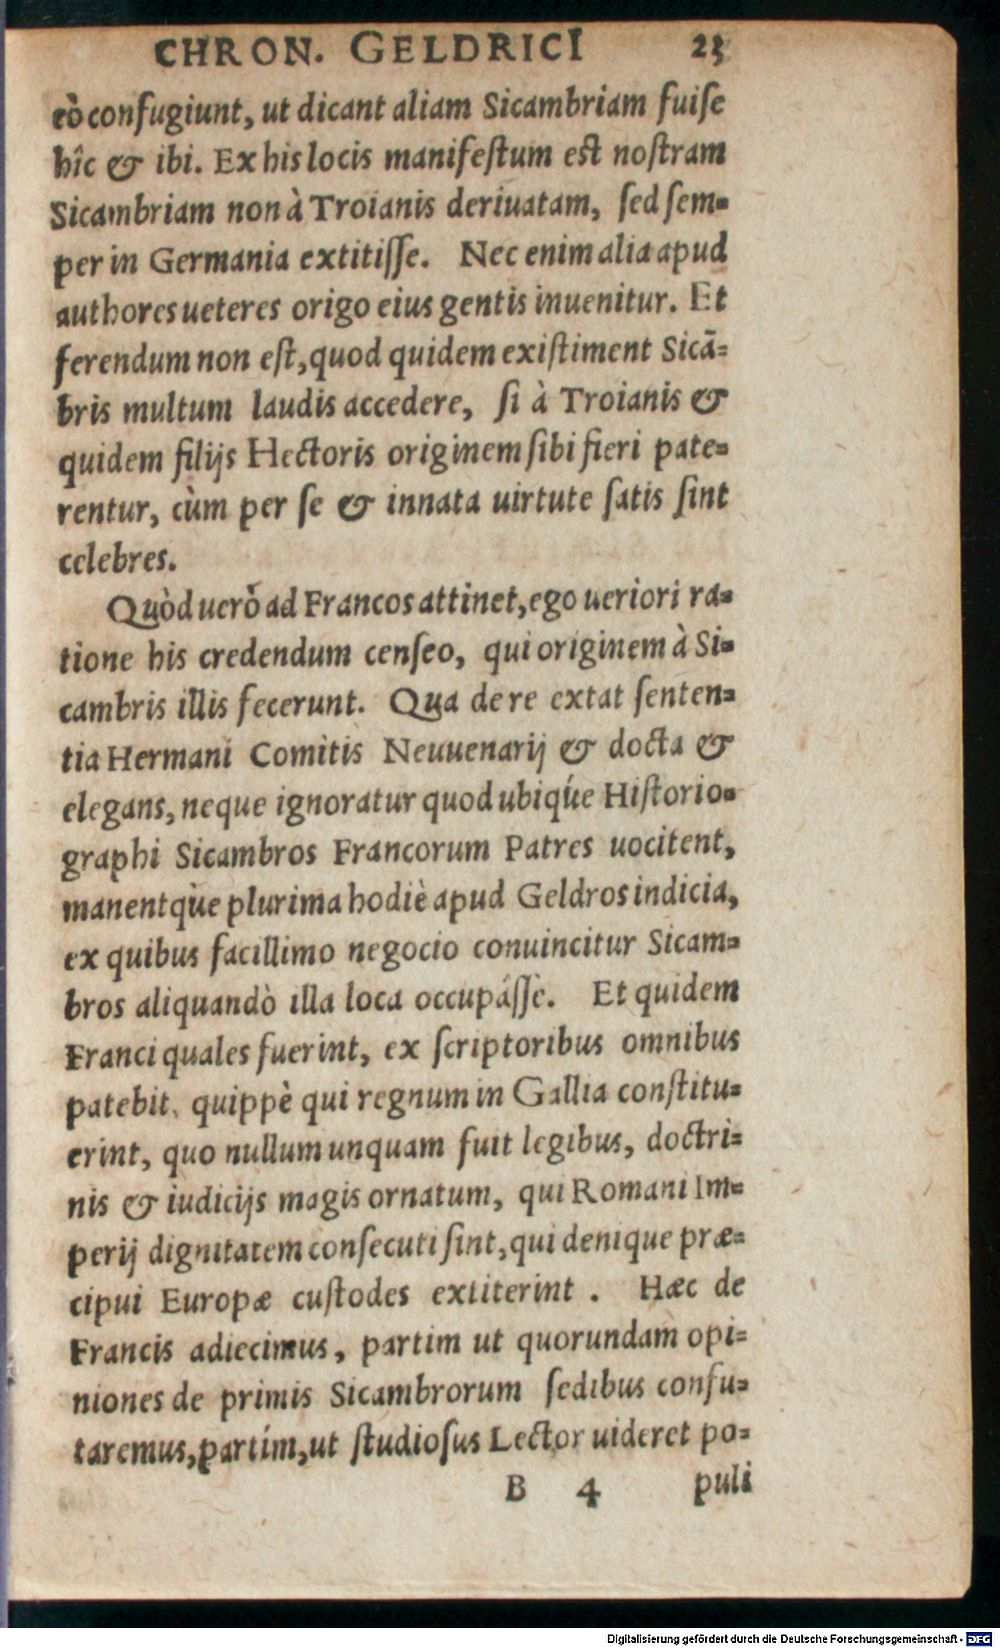 CHRON. GELDRICI 23
eò confugiunt, ut dicant aliam Sicambriam fuiſe
hîc & ibi. Ex his locis manifeſtum eſt noſtram
Sicambriam non à Troianis deriuatam, ſed ſem-
per in Germania extitiſſe. Nec enim alia apud
authores ueteres origo eius gentis inuenitur. Et
ferendum non eſt, quod quidem exiſtiment Sicā-
bris multum laudis accedere, ſi à Troianis &
quidem filijs Hectoris originem ſibi fieri pate-
rentur, cùm per ſe & innata uirtute ſatis ſint
celebres.
Quòd uerò ad Francos attinet, ego ueriori ra-
tione his credendum cenſeo, qui originem à Si-
cambris illis fecerunt. Qua de re extat ſenten-
tia Hermani Comitis Neuuenarij & docta &
elegans, neque ignoratur quod ubiq́ue Hiſtorio-
graphi Sicambros Francorum Patres uocitent,
manentq̀ue plurima hodiè apud Geldros indicia,
ex quibus facillimo negocio conuincitur Sicam-
bros aliquandò illa loca occupáſſè. Et quidem
Franci quales fuerint, ex ſcriptoribus omnibus
patebit, quippè qui regnum in Gallia conſtitu-
erint, quo nullum unquam fuit legibus, doctri-
nis & iudicijs magis ornatum, qui Romani Im-
perij dignitatem conſecuti ſint, qui denique præ-
cipui Europæ cuſtodes extiterint. Hæc de
Francis adiecimus, partim ut quorundam opi-
niones de primis Sicambrorum ſedibus confu-
taremus, partim, ut ſtudioſus Lector uideret po-
B 4 puli
Digitalisierung gefördert durch die Deutsche Forschungsgemeinschaft - DFG